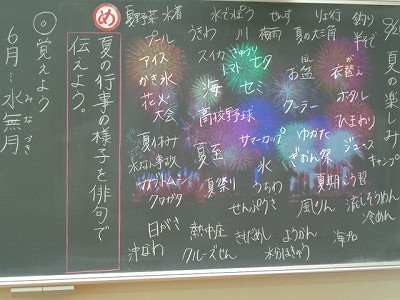 夏の楽しみ
釣り
半そで
衣替え
ホタル
ひまわり
ジュース
キャンプ
りょ行
夏の大三
お盆
ぼん
クーラー
ゆかた
ぎおん祭
夏期こう習
流しそうめん
冷めん
せんす
梅雨
七夕
セミ
サマーカップ
氷
うちわ
風りん
水でっぽう
川
スイカ
きゅうり
トマト
海
高校野球
夏至
夏祭り
せんぷうき
うきわ
水着
プール
夏野菜
アイス
かき氷
花火
大会
夏休み
水なん事故
カブトムシ
クワガタ
日がさ
沖なわ
熱中症
クルーズせん
きもだめし
ようかん
水分ほきゅう
海の
め
夏の行事の様子を俳句で
伝えよう。
◎覚えよう
6月…水無月
みなづき